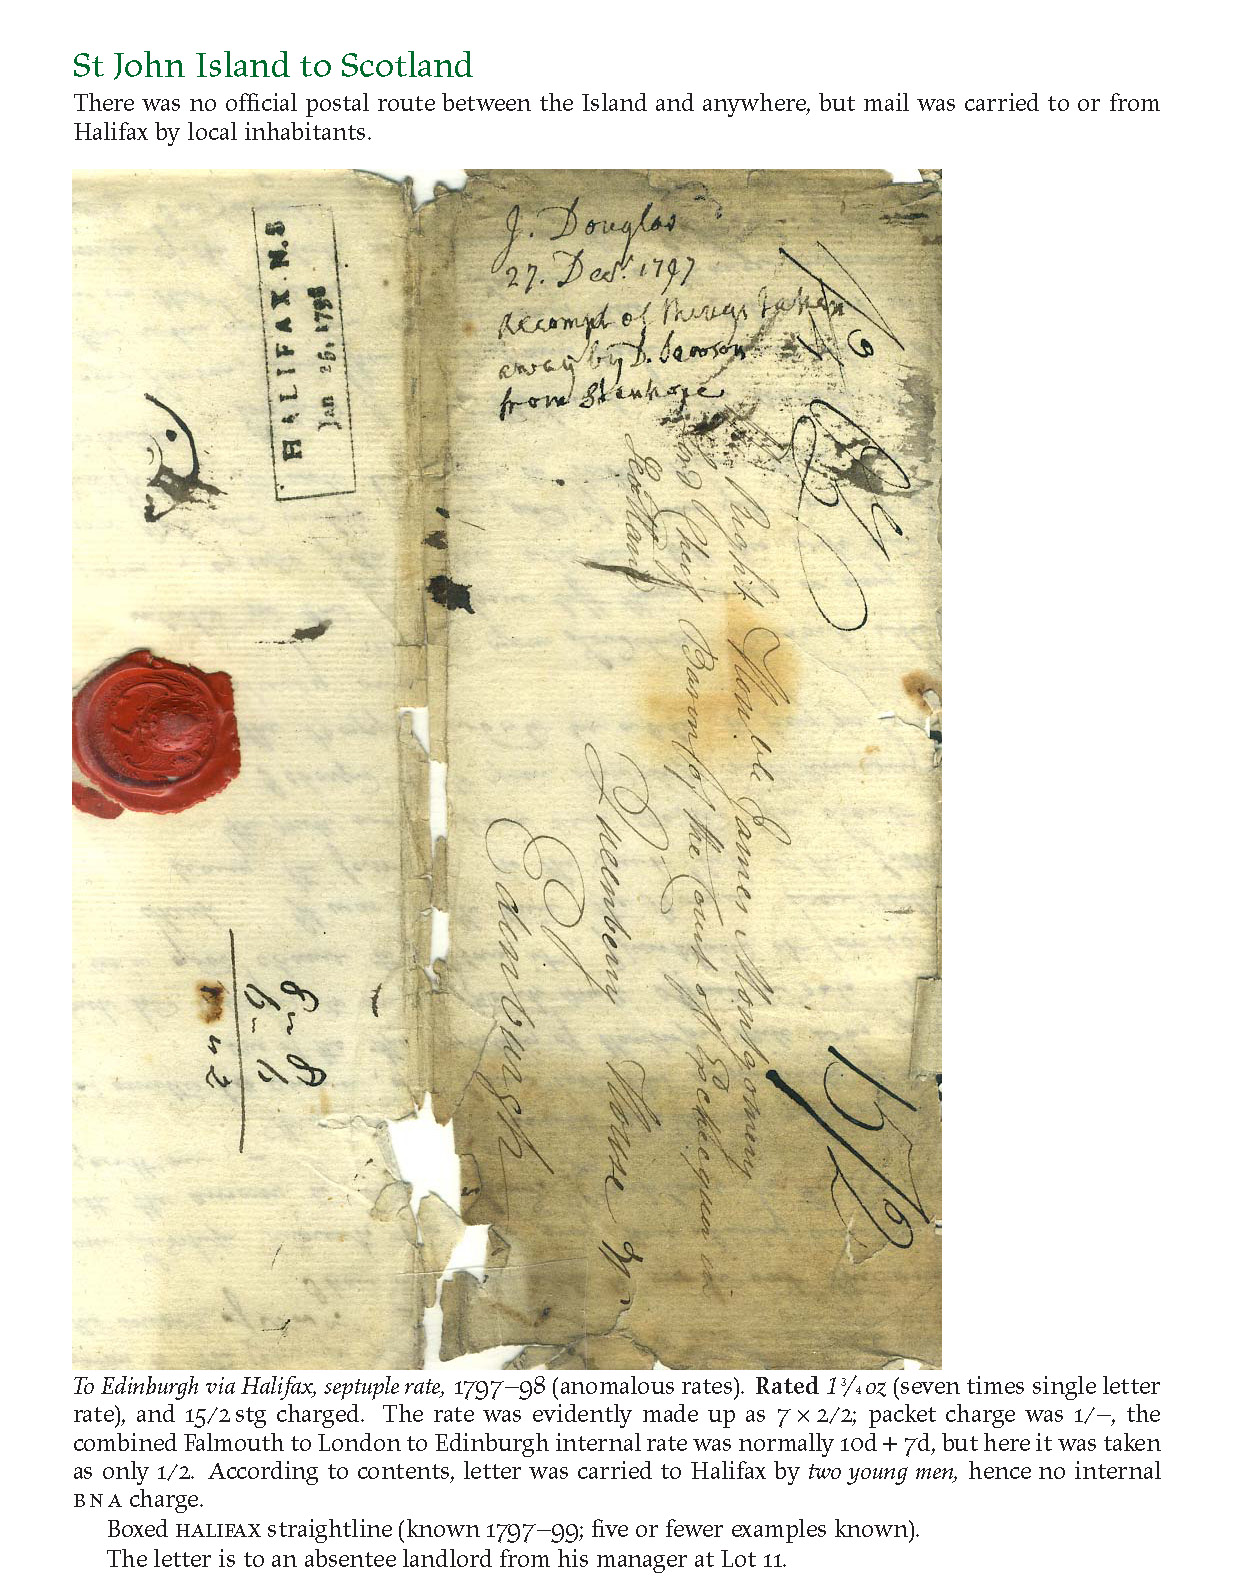 St John Island to Scotland
There was no official postal route between the Island and anywhere, but mail was carried to or from
Halifax by local inhabitants.
HALIFAX. N.S
Jan 26, 1798
J. Douglas
27. Decr. 1797
Accompt of things taken
away by D. Lawson
from Stanhope
Right Hon.ble James Montgomery
Lord Chief Baron of the Court of Exchequer in
Scotland
Queenberry House
Edinburgh
15/2
8 " 8
6 " 6
" 2
To Edinburgh via Halifax, septuple rate, 1797–98 (anomalous rates). Rated 1 3/4 oz (seven times single letter
rate), and 15/2 stg charged. The rate was evidently made up as 7 × 2/2; packet charge was 1/–, the
combined Falmouth to London to Edinburgh internal rate was normally 10d + 7d, but here it was taken
as only 1/2. According to contents, letter was carried to Halifax by two young men, hence no internal
BNA charge.
Boxed HALIFAX straightline (known 1797–99; five or fewer examples known).
The letter is to an absentee landlord from his manager at Lot 11.